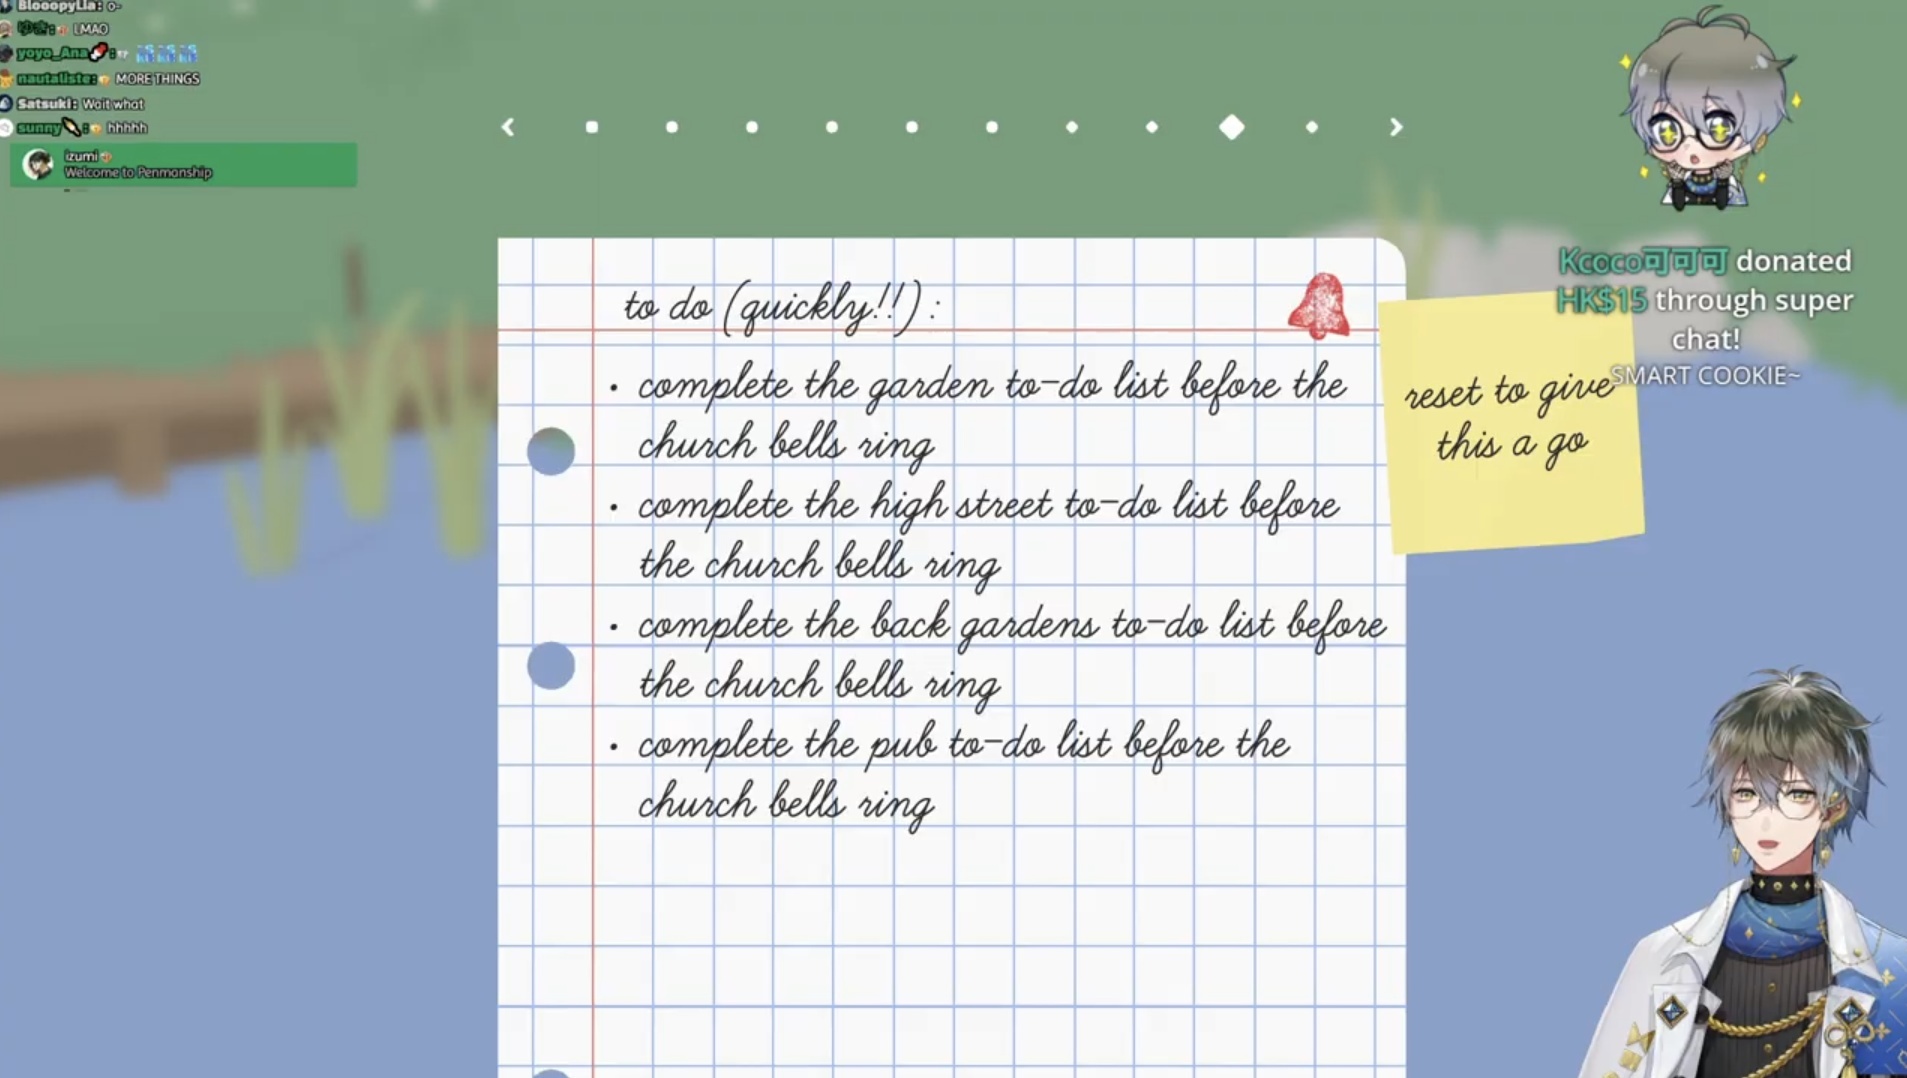 BlooopyLia: o-
ゆき: LMAO
yoyo_Ana:
nautaliste: MORE THINGS
Satsuki: Wait what
sunny: hhhhh
izumi
Welcome to Penmanship
to do (quickly!!) :
• complete the garden to-do list before the
church bells ring
• complete the high street to-do list before
the church bells ring
• complete the back gardens to-do list before
the church bells ring
• complete the pub to-do list before the
church bells ring
reset to give
this a go
Kcoco可可可 donated
HK$15 through super
chat!
SMART COOKIE~